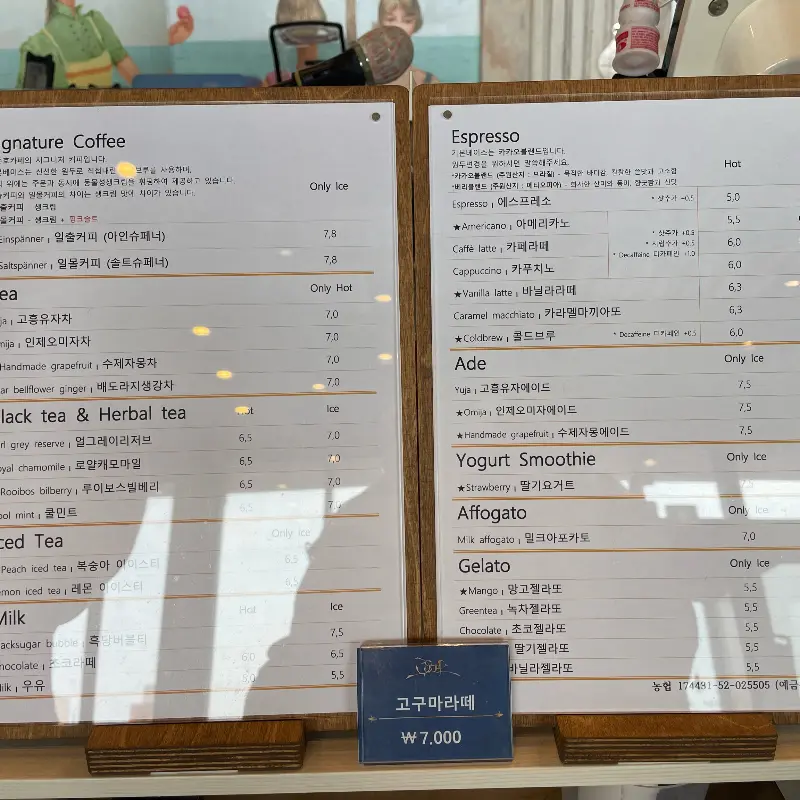 gnature Coffee
Only Ice
Einspänner | 일출커피 (아인슈페너) 7,8
Saltspänner | 일몰커피 (솔트슈페너) 7,8
ea Only Hot
ja | 고흥유자차 7,0
mija | 인제오미자차 7,0
Handmade grapefruit | 수제자몽차 7,0
ar bellflower ginger | 배도라지생강차 7,0
lack tea & Herbal tea Hot Ice
rl grey reserve | 얼그레이리저브 6,5 7,0
oyal chamomile | 로얄캐모마일 6,5 7,0
Rooibos bilberry | 루이보스빌베리 6,5 7,0
ool mint | 쿨민트 6,5 7,0
ced Tea Only Ice
Peach iced tea | 복숭아 아이스티 6,5
emon iced tea | 레몬 아이스티 6,5
Milk Hot Ice
acksugar bubble | 흑당버블티 7,5
hocolate | 초코라떼 6,0 6,5
ilk | 우유 5,0 5,5
Espresso
기본베이스는 카카오블렌드입니다.
원두변경을 원하시면 말씀해주세요.
Hot
Espresso | 에스프레소 * 샷추가 +0.5 5,0
★Americano | 아메리카노 5,5
* 샷추가 +0.5
* 시럽추가 +0.5
Caffè latte | 카페라떼 6,0
* Decaffeine 디카페인 +1.0
Cappuccino | 카푸치노 6,0
★Vanilla latte | 바닐라라떼 6,3
Caramel macchiato | 카라멜마끼아또 6,3
★Coldbrew | 콜드브루 * Decaffeine 디카페인 +0.5 6,0
Ade Only Ice
Yuja | 고흥유자에이드 7,5
★Omija | 인제오미자에이드 7,5
★Handmade grapefruit | 수제자몽에이드 7,5
Yogurt Smoothie Only Ice
★Strawberry | 딸기요거트 7,5
Affogato Only Ice
Milk affogato | 밀크아포카토 7,0
Gelato Only Ice
★Mango | 망고젤라또 5,5
Greentea | 녹차젤라또 5,5
Chocolate | 초코젤라또 5,5
딸기젤라또 5,5
바닐라젤라또 5,5
농협 174431-52-025505 (예금
고구마라떼
₩7.000